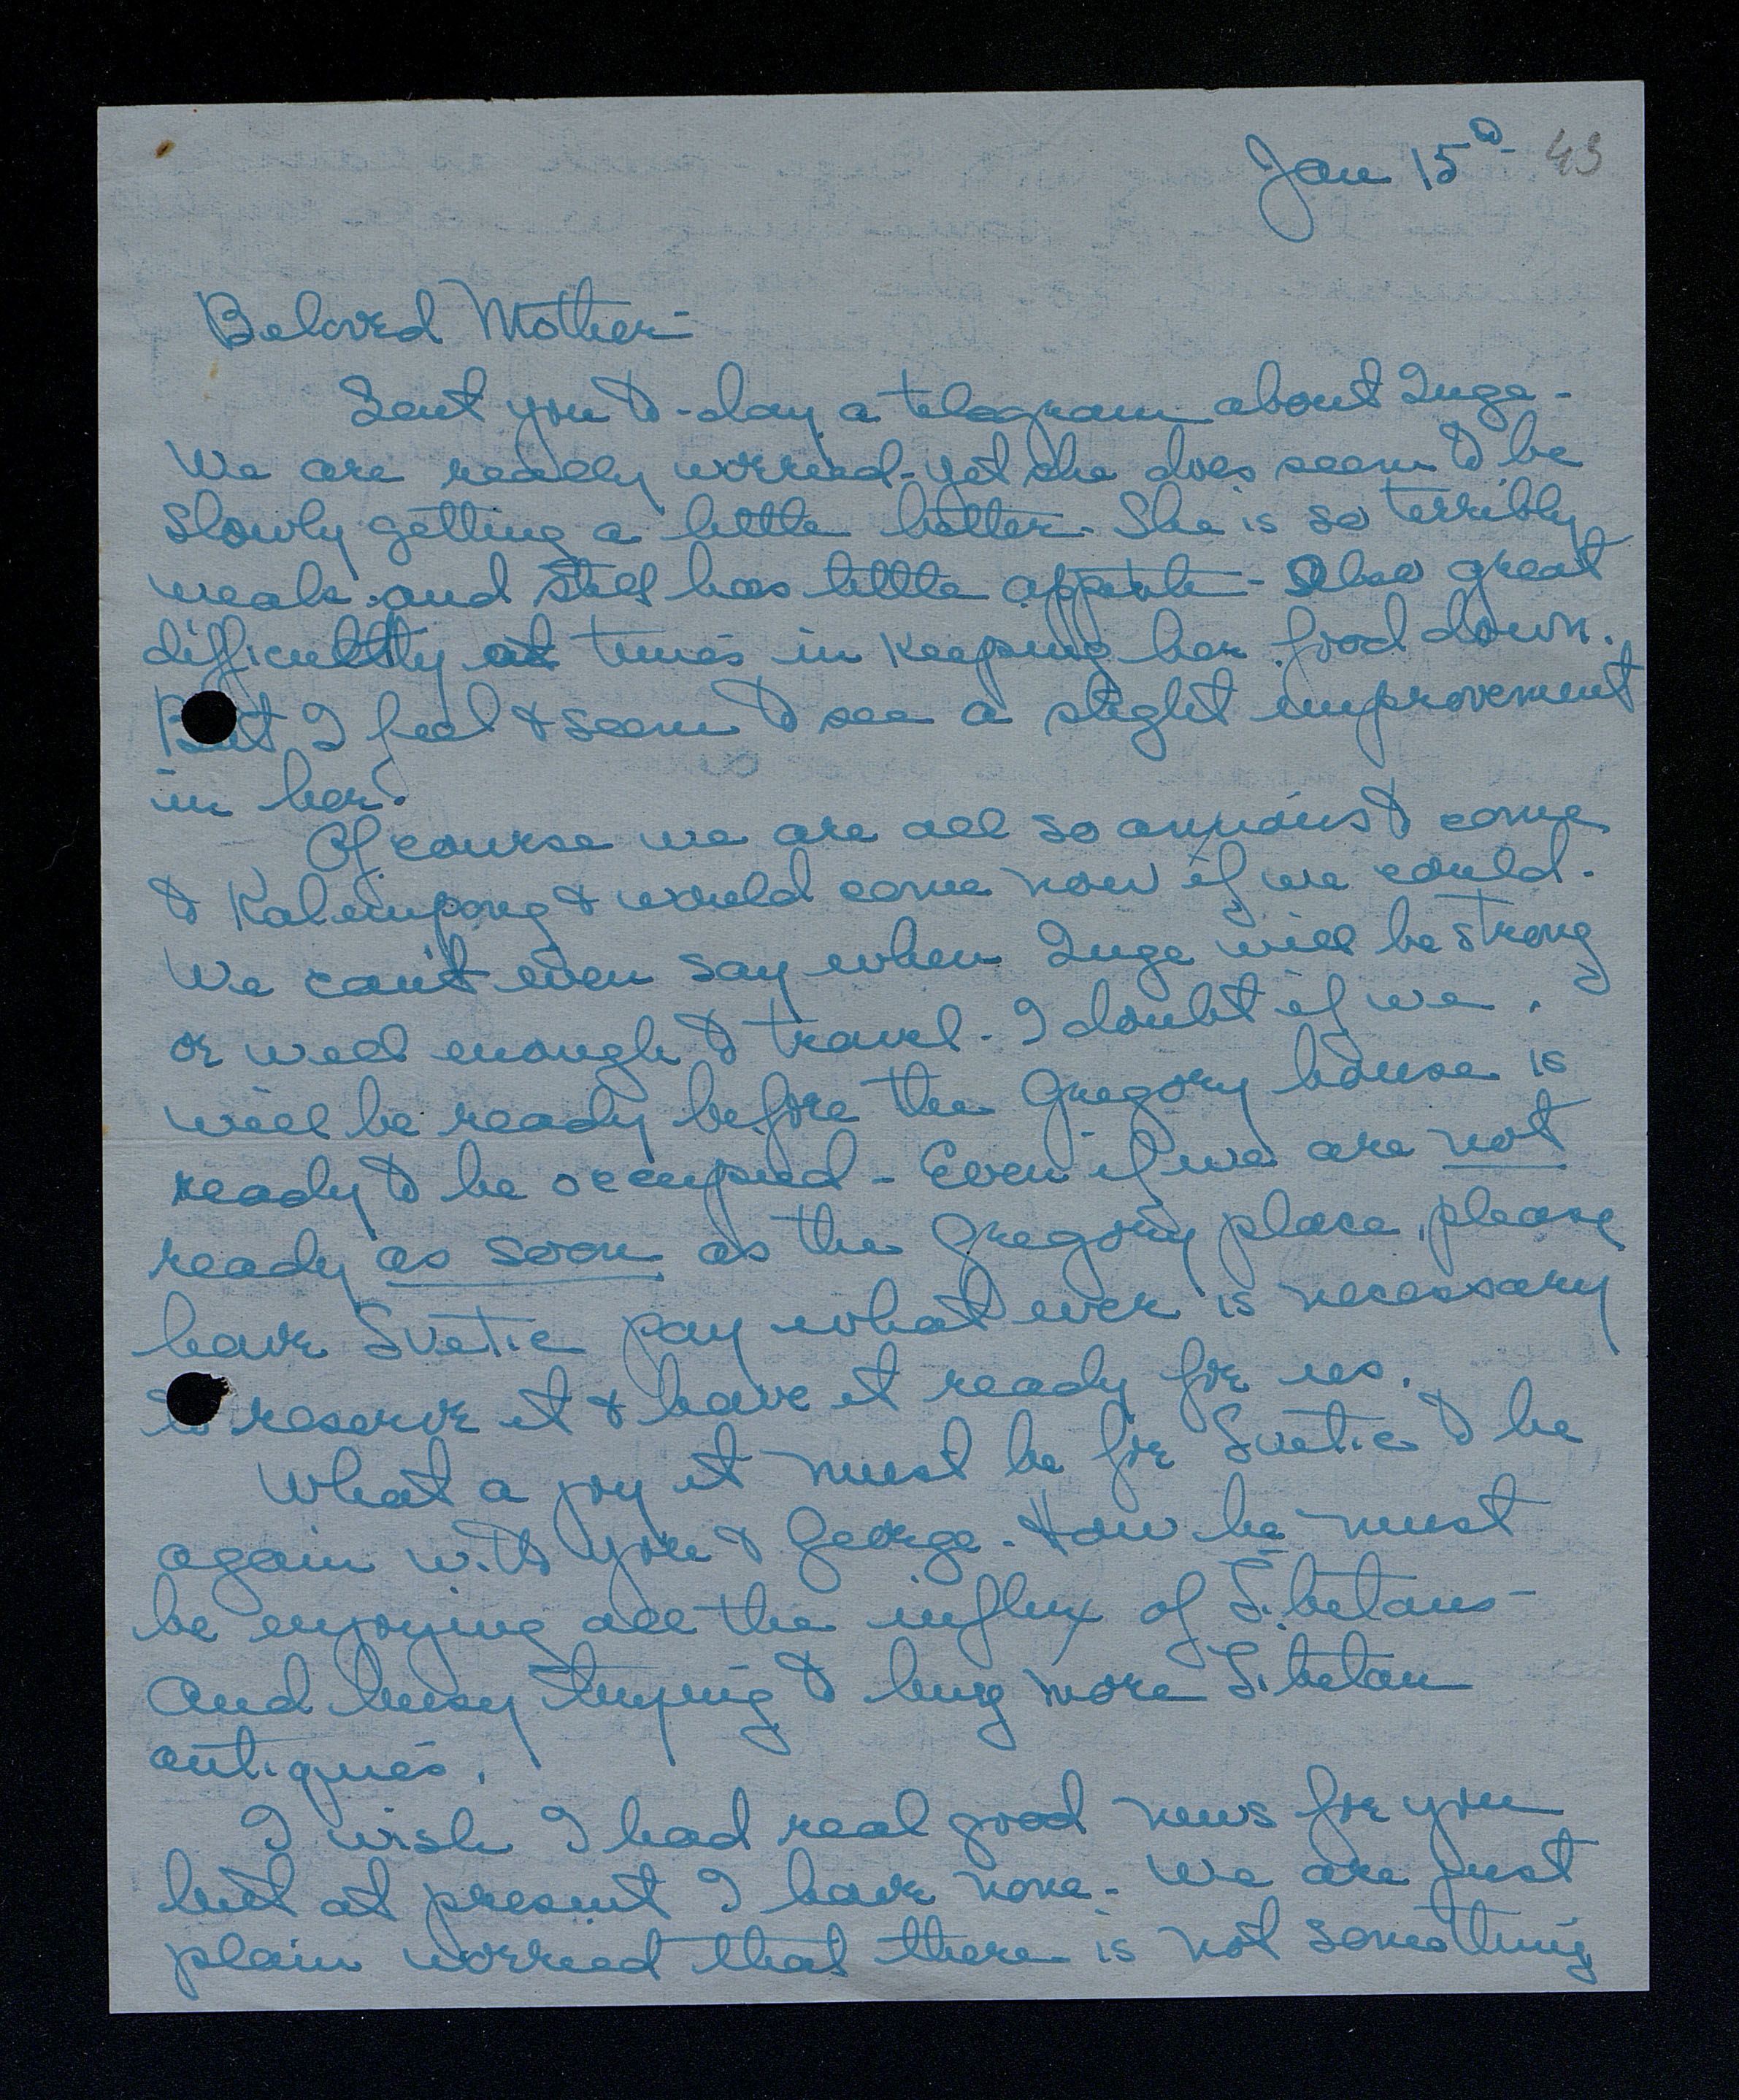 Jan 15th 43
Beloved Mother-
Sent you to-day a telegram about Inge-
We are really worried-yet she does seem to be
slowly getting a little better. She is so terribly
weak and still has little appetite - Also great
difficulty at times in keeping her food down.
But I feel & seem to see a slight improvement
in her.
Of course we are all so anxious to come
to Kalimpong & would come now if we could.
We can't even say when Inge will be strong
or well enough to travel. I doubt if we
will be ready before the Gregory house is
ready to be occupied - Even if we are not
ready as soon as the Gregory place, please
have Svetic pay what ever is necessary
to reserve it & have it ready for us.
What a joy it must be for Svetic to be
again with you & George. How he must
be enjoying all the influx of Tibetans-
And busy trying to buy more Tibetan
antiques.
I wish I had real good news for you
but at present I have none. We are just
plain worried that there is not something